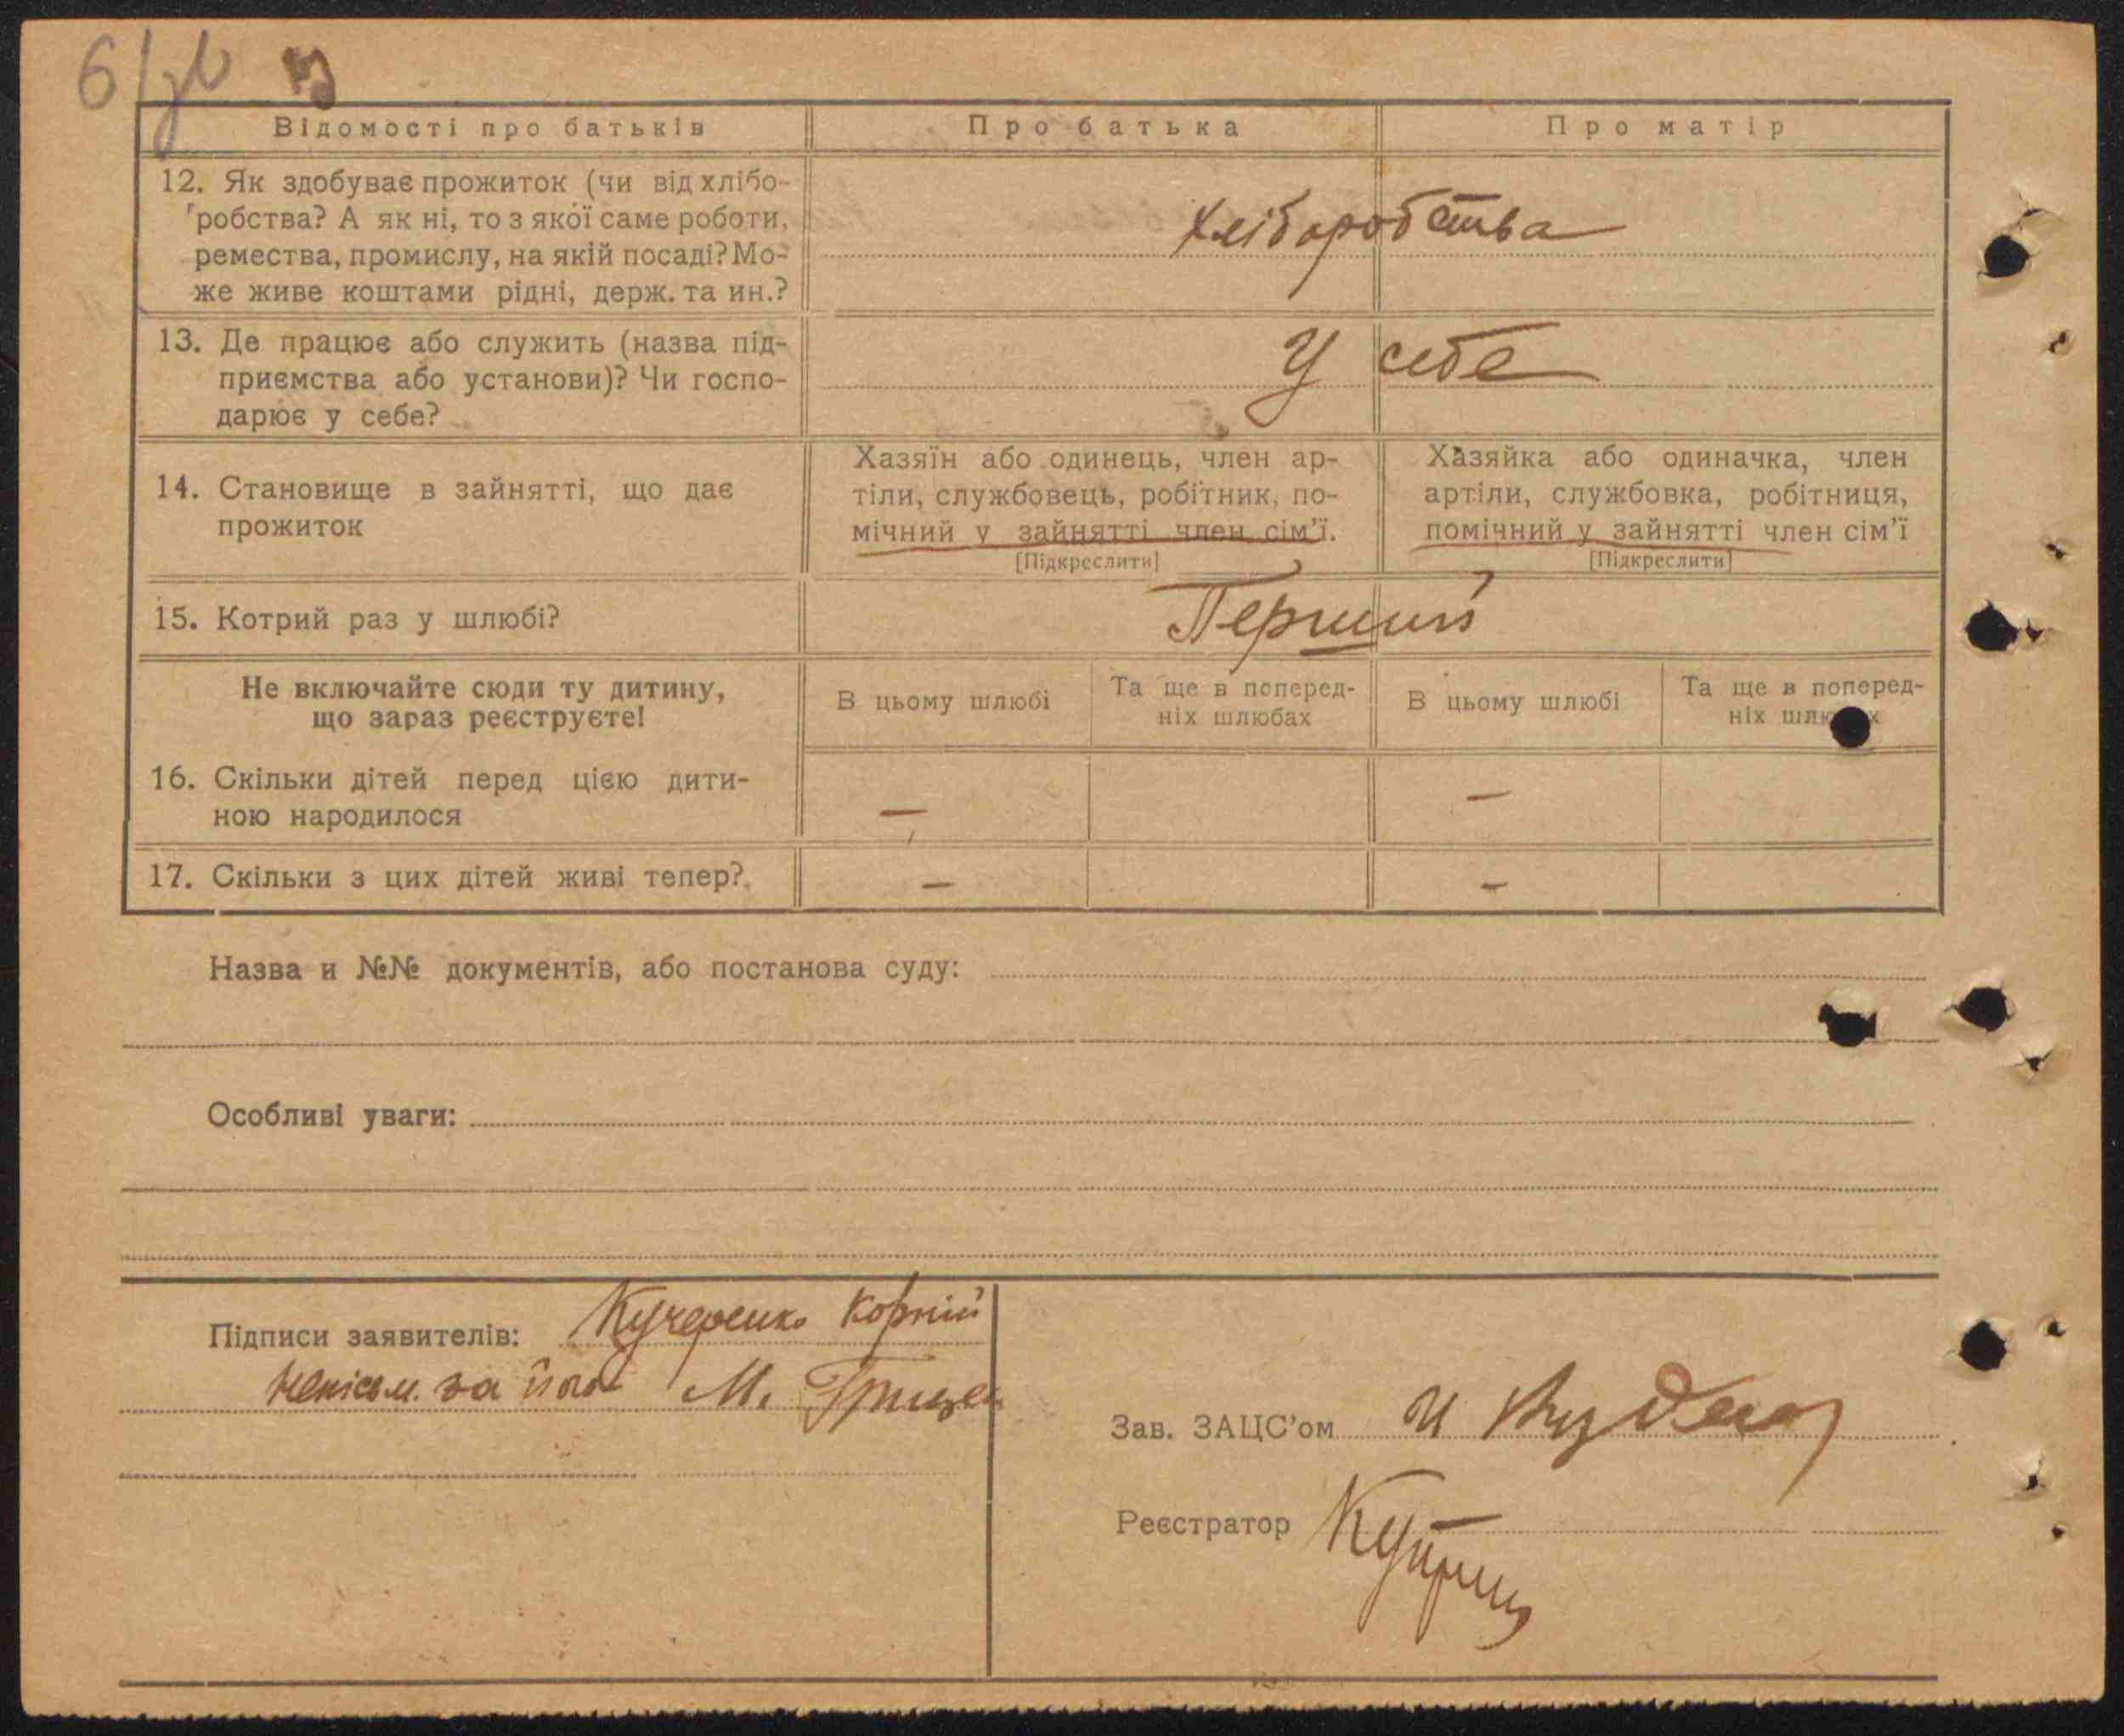 6/зв
Відомості про батьків Про батька Про матір
12. Як здобуває прожиток (чи від хлібо-
робства? А як ні, то з якої саме роботи,
ремества, промислу, на якій посаді? Мо-
же живе коштами рідні, держ. та ин.?
Хліборобства
13. Де працює або служить (назва під-
приємства або установи)? Чи госпо-
дарює у себе?
У себе
14. Становище в зайнятті, що дає
прожиток
Хазяїн або одинець, член ар-
тіли, службовець, робітник, по-
мічний у зайнятті член сім'ї.
[Підкреслити]
Хазяйка або одиначка, член
артіли, службовка, робітниця,
помічний у зайнятті член сім'ї
[Підкреслити]
15. Котрий раз у шлюбі? Перший
Не включайте сюди ту дитину,
що зараз реєструєте!
В цьому шлюбі
Та ще в поперед-
ніх шлюбах
В цьому шлюбі
Та ще в поперед-
ніх
16. Скільки дітей перед цією дити-
ною народилося
— —
17. Скільки з цих дітей живі тепер? — —
Назва и №№ документів, або постанова суду:
Особливі уваги:
Підписи заявителів: Кучеренко Корній
за його М.
Зав. ЗАЦС'ом
Реєстратор